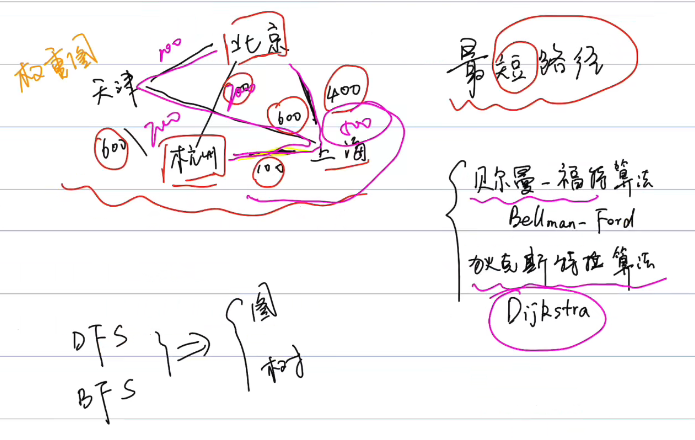 权重图
100
北京
天津
700
400
600
200
600
杭州
100
上海
最短路径
贝尔曼-福特算法
Bellman-Ford
狄克斯特拉算法
Dijkstra
DFS
BFS
图
树